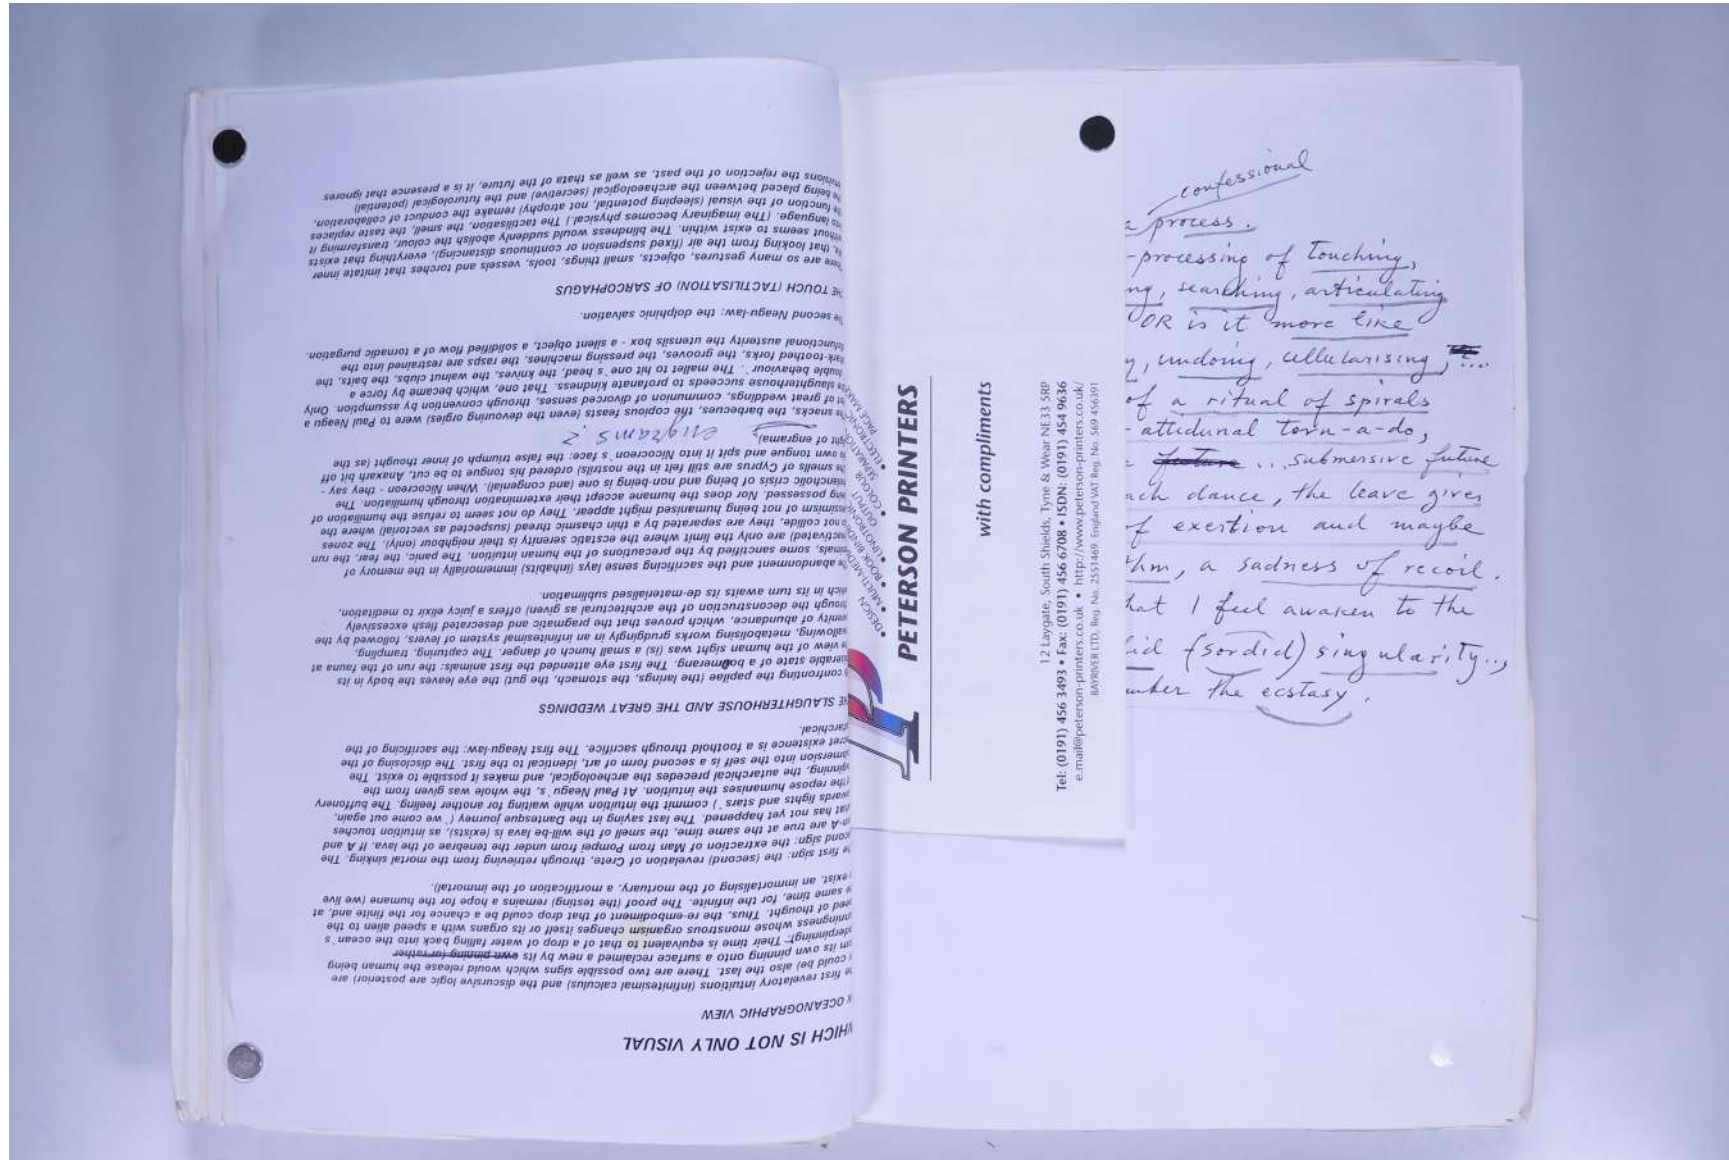 WHICH IS NOT ONLY VISUAL
OCEANOGRAPHIC VIEW
first revelatory intuitions (infinitesimal calculus) and the discursive logic are posterior) are
could be) also the last. There are two possible signs which would release the human being
its own pinning onto a surface reclaimed a new by its own pinning (or rather
derpinning). Their time is equivalent to that of a drop of water falling back into the ocean`s
nningness whose monstrous organism changes itself or its organs with a speed alien to the
eed of thought. Thus, the re-embodiment of that drop could be a chance for the finite and, at
same time, for the infinite. The proof (the testing) remains a hope for the humane (we live
exist, an immortalising of the mortuary, a mortification of the immortal).
he first sign: the (second) revelation of Crete, through retrieving from the mortal sinking. The
cond sign: the extraction of Man from Pompei from under the tenebrae of the lava. If A and
on-A are true at the same time, the smell of the will-be lava is (exists), as intuition touches
hat has not yet happened. The last saying in the Dantesque journey (`we come out again,
wards lights and stars`) commit the intuition while waiting for another feeling. The buffonery
the repose humanises the intuition. At Paul Neagu`s, the whole was given from the
ginning, the autarchical precedes the archeological, and makes it possible to exist. The
mersion into the self is a second form of art, identical to the first. The disclosing of the
cret existence is a foothold through sacrifice. The first Neagu-law: the sacrificing of the
tarchical.
HE SLAUGHTERHOUSE AND THE GREAT WEDDINGS
confronting the papilae (the larings, the stomach, the gut) the eye leaves the body in its
iserable state of a boomerang. The first eye attended the first animals: the run of the fauna at
view of the human sight was (is) a small hunch of danger. The capturing, trampling,
wallowing, metabolising works grudgingly in an infinitesimal system of levers, followed by the
renity of abundance, which proves that the pragmatic and desecrated flesh excessively
hrough the deconstruction of the architectural as given) offers a juicy elixir to meditation,
hich in its turn awaits its de-materialised sublimation.
he abandonment and the sacrificing sense lays (inhabits) immemorially in the memory of
imals, some sanctified by the precautions of the human intuition. The panic, the fear, the run
activated) are only the limit where the ecstatic serenity is their neighbour (only). The zones
not collide, they are separated by a thin chasmic thread (suspected as vectorial) where the
ssimism of not being humanised might appear. They do not seem to refuse the humiliation of
ing possessed. Nor does the humane accept their extermination through humiliation. The
elancholic crisis of being and non-being is one (and congenial). When Nicocreon - they say -
he smells of Cyprus are still felt in the nostrils) ordered his tongue to be cut, Anaxarh bit off
own tongue and spit it into Nicocreon`s face: the false triumph of inner thought (as the
ght of engrama). engrams ?
he snacks, the barbecues, the copious feasts (even the devouring orgies) were to Paul Neagu a
of great weddings, communion of divorced senses, through convention by assumption. Only
slaughterhouse succeeds to profanate kindness. That one, which became by force a
double behaviour`. The mallet to hit one`s head, the knives, the walnut clubs, the baits, the
ark-toothed forks, the grooves, the pressing machines, the rasps are restrained into the
sfunctional austerity the utensils box - a silent object, a solidified flow of a tornadic purgation.
he second Neagu-law: the dolphinic salvation.
HE TOUCH (TACTILISATION) OF SARCOPHAGUS
here are so many gestures, objects, small things, tools, vessels and torches that imitate inner
that looking from the air (fixed suspension or continuous distancing), everything that exists
ithout seems to exist within. The blindness would suddenly abolish the colour, transforming it
to language. (The imaginary becomes physical.) The tactilisation, the smell, the taste replaces
the function of the visual (sleeping potential, not atrophy) remake the conduct of collaboration,
he being placed between the archaeological (secretive) and the futurological (potential)
the rejection of the past, as well as thata of the future, it is a presence that ignores
• DESIGN
• MULTI-MEDIA
• BOOK BINDING
• LINOTRONIC OUTPUT
• COLOUR SEPARATION
• ELECTRONIC PAGE MAKE
PETERSON PRINTERS
with compliments
12 Laygate, South Shields, Tyne & Wear NE33 5RP
Tel: (0191) 456 3493 • Fax: (0191) 456 6708 • ISDN: (0191) 454 9636
e.mail@peterson-printers.co.uk • http://www.peterson-printers.co.uk/
BAYRIVER LTD, Reg. No. 2551469 England VAT Reg. No. 569 456391
confessional
a process.
-processing of touching,
ng, searching, articulating
OR is it more like
y, undoing, cellularising, ...
of a ritual of spirals
-attidunal torn-a-do,
future ... submersive future
ach dance, the leave gives
of exertion and maybe
thm, a sadness of recoil.
hat I feel awaken to the
id (sordid) singularity..,
mber the ecstasy.